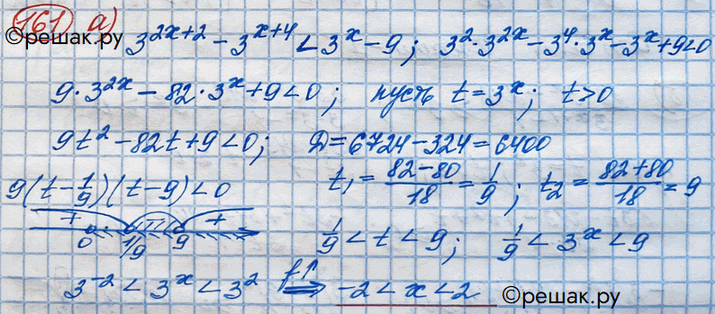 161 а)
©решак.ру
3^{2x+2} - 3^{x+4} < 3^x - 9; 3^2·3^{2x} - 3^4·3^x - 3^x + 9 < 0
9·3^{2x} - 82·3^x + 9 < 0; пусть t = 3^x; t > 0
9t^2 - 82t + 9 < 0; Д = 6724 - 324 = 6400
9(t - 1/9)(t - 9) < 0 t_1 = (82-80)/18 = 1/9; t_2 = (82+80)/18 = 9
+ - +
0 1/9 9 1/9 < t < 9; 1/9 < 3^x < 9
3^{-2} < 3^x < 3^2 f↑ ⇒ -2 < x < 2
©решак.ру